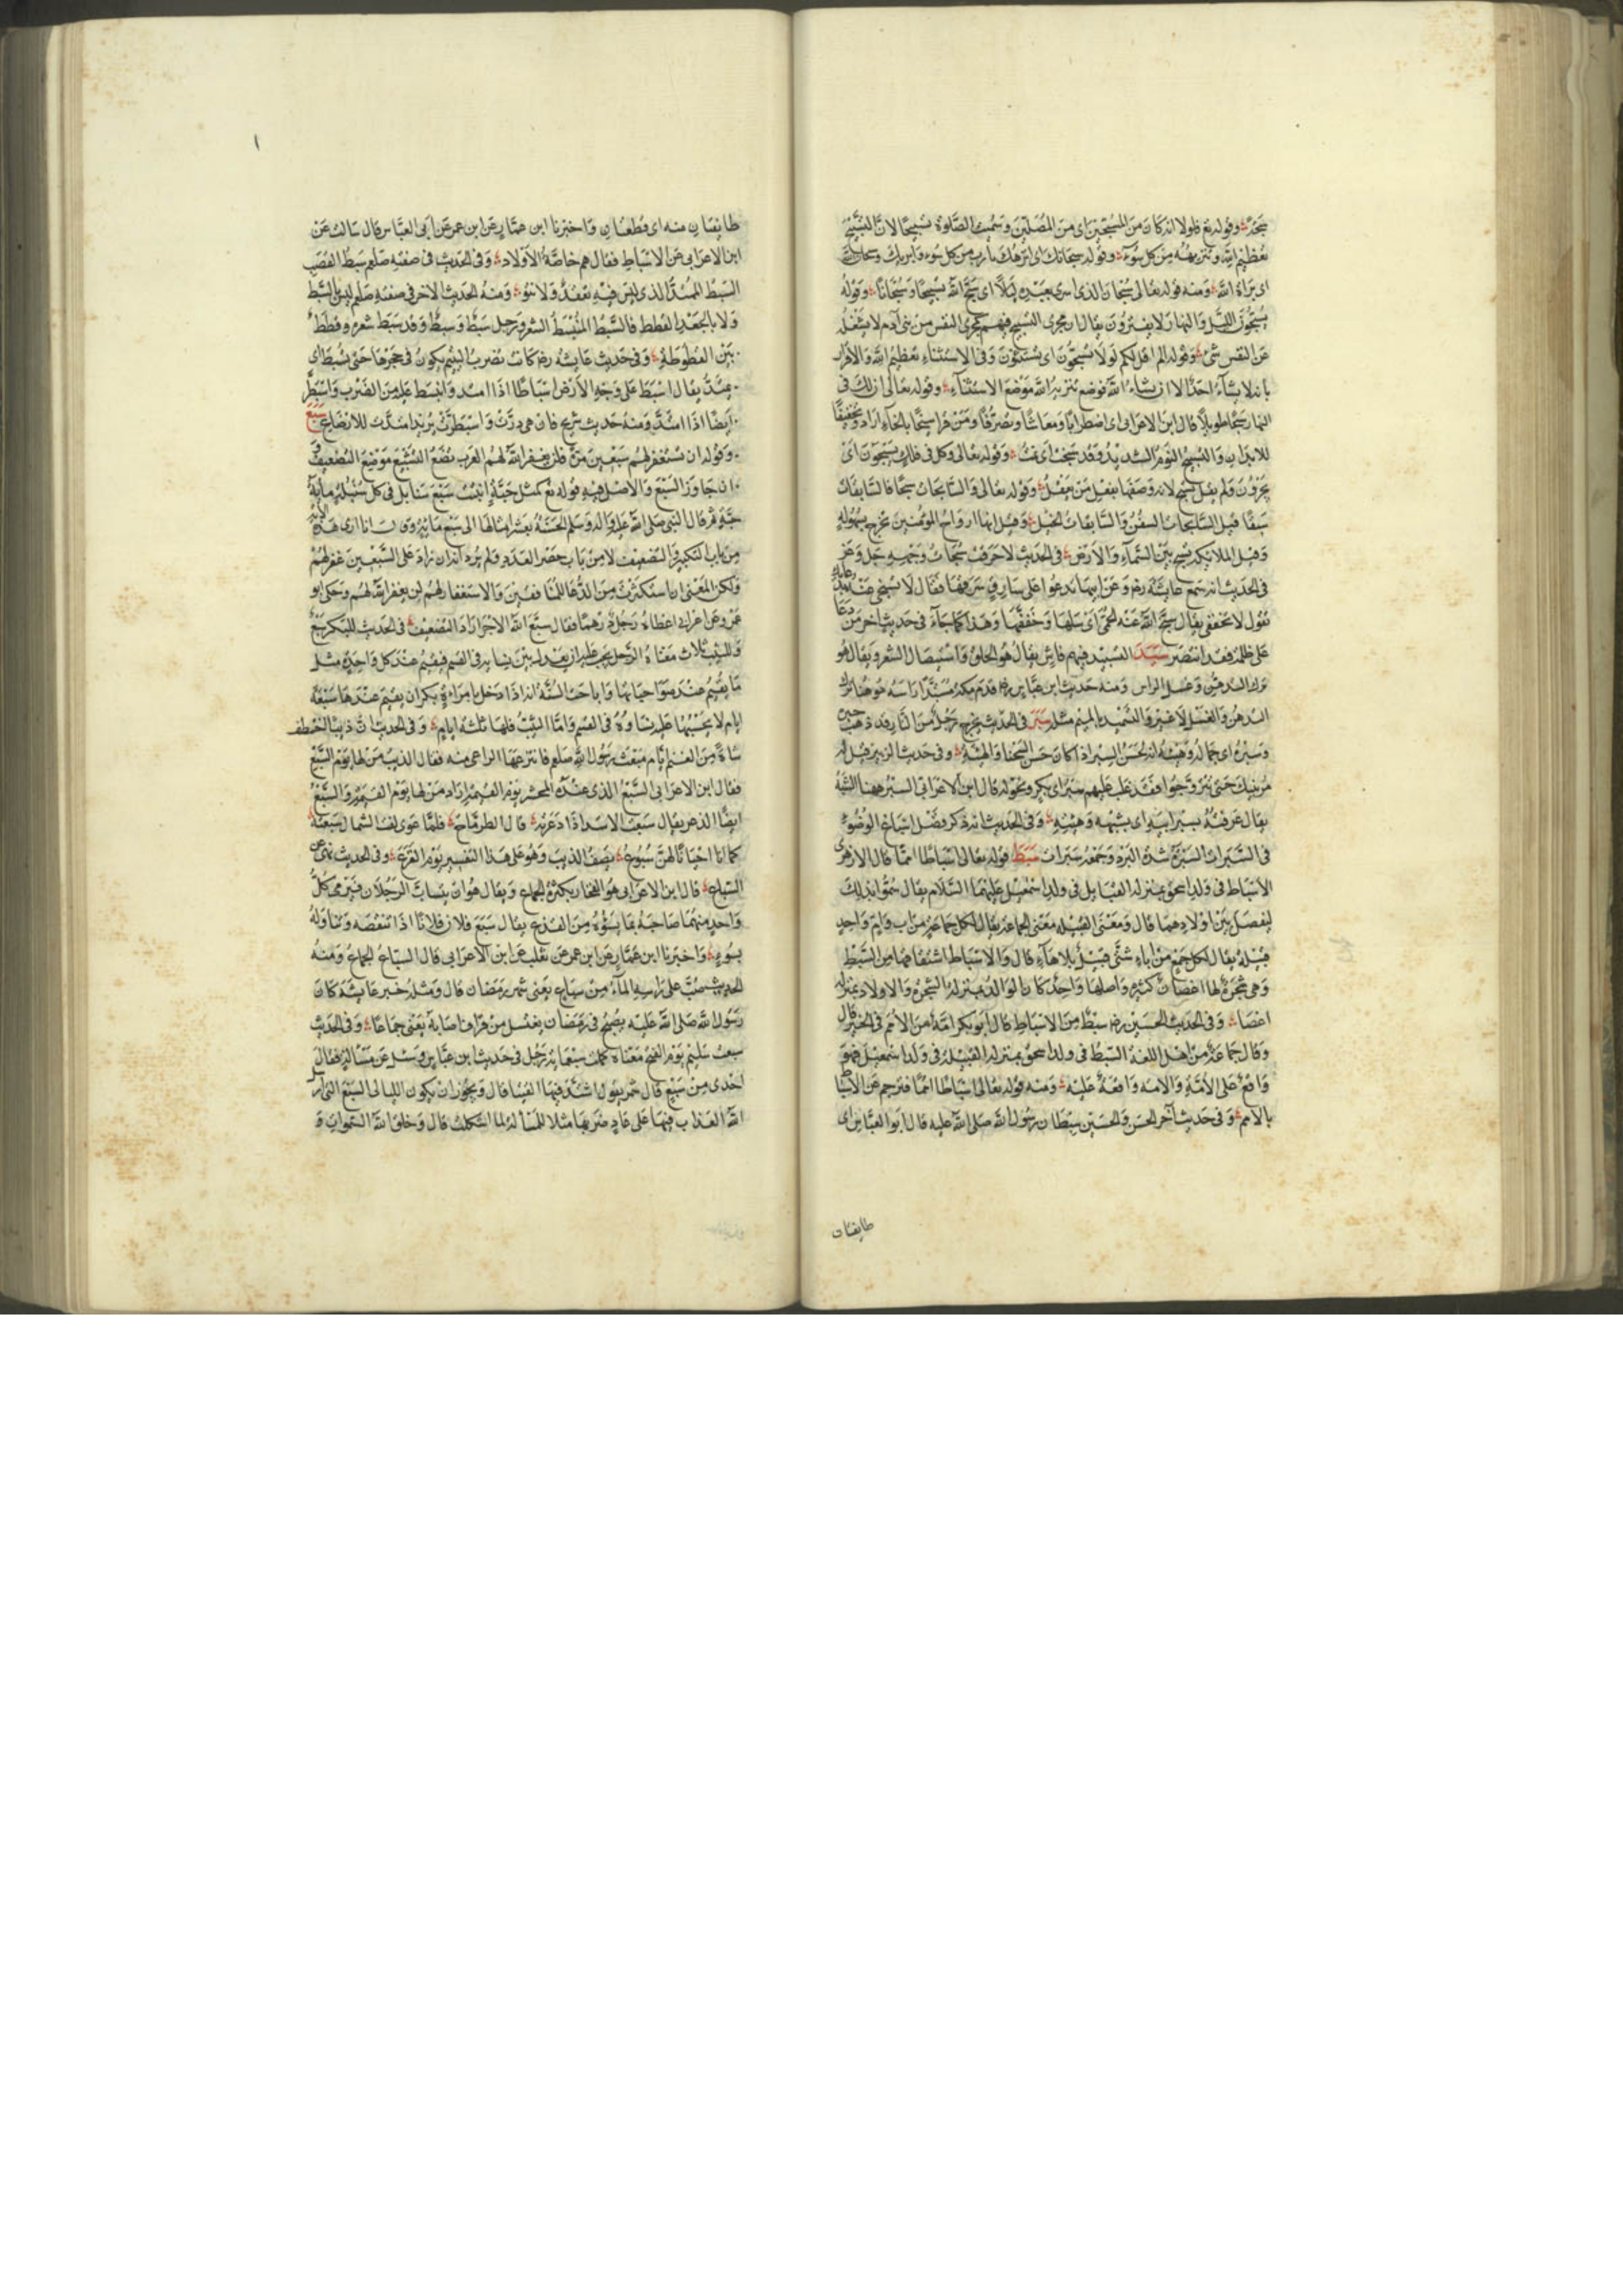 وقوله تع فلولا انه كان من المسبحين اى من المصلين وسميت الصلوة تسبيحًا لان التسبيح
تعظيم الله وتنزيهه من كل سوء وقوله سبحانك اى انزهك يا رب من كل سوء وابريك
اى براة الله ومنه قوله تعالى سبحان الذى اسرى بعبده ليلًا اى سبح الله تسبيحًا وسبحانًا وقوله
يسبحون الليل والنهار لا يفترون يقال ان مجرى التسبيح فيهم كمجرى النفس من بنى آدم لا يشغله
عن النفس شئ وقوله الم اقل لكم لولا تسبحون اى تستثنون وفى الاستثناء تعظيم الله والاقرار
بانه لا يشاء احد الا ان يشاء الله فوضع تنزيه الله موضع الاستثناء وقوله تعالى ان لك فى
النهار سبحًا طويلًا قال ابن الاعرابى اى اضطرابًا ومعاشًا وتصرفًا ومن قرا سبخًا بالخاء اراد تخفيفًا
للابدان والتسبيخ النوم الشديد وقد سبخت اى نمت وقوله تعالى وكل فى فلك يسبحون اى
يجرون ولم يقل تسبح لانه وصفها بفعل من يعقل وقوله تعالى والسابحات سبحًا فالسابقات
سبقًا قيل السابحات السفن والسابقات الخيل وقيل انها ارواح المؤمنين تخرج بسهولة
وقيل الملائكة تسبح بين السماء والارض فى الحديث لاحرقت سبحات وجهه جل وعز
فى الحديث انه سمع عايشة رضـ تدعوا على سارق سرقها فقال لا تسبخى عنه بدعائك
تقول لا تخففى يقال سبخ الله عنه الحمى اى سلها وخففها وهذا كما جاء فى حديث اخر من دعا
على ظلمه فقد انتصر سبد التسبيد فيهم فاش يقال هو الحلق واستيصال الشعر ويقال هو
ترك التدهن وغسل الراس ومنه حديث ابن عباس رضـ قدم مكة مسبدًا راسه فهو هنا ترك
التدهن والغسل لا غير والتسميد بالميم مثله سبر فى الحديث يخرج رجل من النار قد ذهب حبره
وسبره اى جماله وهيئته انه لحسن السبر اذا كان حسن السحنا والهيئة وفى حديث الزبير قيل له
مر بنيك حتى يتزوجوا فقد غلب عليهم سبر ابى بكر ونحوله قال ابن الاعرابى السبر ههنا الشبه
يقال عرفته بسبر ابيه اى بشبهه وهيئته وفى الحديث انه ذكر فضل اسباغ الوضوء
فى السبرات السبرة شدة البرد وجمعه سبرات سبط قوله تعالى اسباطًا امما قال الازهرى
الاسباط فى ولد اسحق بمنزلة القبايل فى ولد اسمعيل عليهما السلام يقال سموا بذلك
ليفصل بين اولادهما قال ومعنى القبيلة معنى الجماعة يقال لكل جماعة من اب وام واحد
قبيلة يقال لكل جمع من اباء شتى قبيل بلا هاء قال والاسباط اشتقاقها من السبط
وهى شجرة لها اغصان كثيرة واصلها واحد كان الوالد بمنزلة الشجرة والاولاد بمنزلة
اغصانها وفى الحديث الحسين رضـ سبط من الاسباط قال ابو بكر امة من الامم فى الخير قال
وقال جماعة من اهل اللغة السبط فى ولد اسحق بمنزلة القبيلة فى ولد اسمعيل فهو
واقع على الامة والامة واقعة عليه ومنه قوله تعالى اسباطًا امما فترجم عن الاسباط
بالامم وفى حديث آخر الحسن والحسين سبطا رسول الله صلى الله عليه قال ابو العباس اى
طايفتان
طايفتان منه اى قطعتان واخبرنا ابن عمار عن ابن عمر عن ابى العباس قال سالت عن
ابن الاعرابى عن الاسباط فقال هم خاصة الاولاد وفى الحديث فى صفته صلعم سبط القصب
السبط الممتد الذى ليس فيه تعقد ولا نتو ومنه الحديث الاخر فى صفته صلعم ليس بالسبط
ولا بالجعد القطط فالسبط المنبسط الشعر ورجل سبط وسبط وقد سبط شعره وقطط
بين القطوطة وفى حديث عايشة رضـ كانت تضرب اليتيم يكون فى حجرها حتى يسبط اى
يمتد يقال اسبط على وجه الارض اسباطًا اذا امتد وانبسط عليه من الضرب واسبطر
ايضًا اذا امتد ومنه حديث شريح فان هى درت واسبطرت يريد امتدت للارضاع سبع
وقوله ان تستغفر لهم سبعين مرة فلن يغفر الله لهم العرب تضع التسبيع موضع التضعيف
وان جاوز السبع والاصل فيه قوله تع كمثل حبة انبتت سبع سنابل فى كل سنبلة ماية
حبة ثم قال النبى صلى الله عليه واله وسلم الحسنة بعشر امثالها الى سبع ماية انا ارى هذه الاية
من باب التكثير والتضعيف لا من باب حصر العدد ولم يرد انه ان زاد على السبعين غفر لهم
ولكن المعنى ان استكثرت من الدعا للمنافقين والاستغفار لهم لن يغفر الله لهم وحكى ابو
عمرو عن اعرابى اعطاه رجل درهمًا فقال سبع الله الاجر اراد التضعيف فى الحديث للبكر سبع
وللثيب ثلاث معناه الرجل يجب عليه ان يعدل بين نسايه فى القسم فيقيم عند كل واحدة مثل
ما يقيم عند صواحباتها واباحت السنة انه اذا دخل بامراة بكر ان يقيم عندها سبعة
ايام لا يحسبها عليه نساوه فى القسم واما الثيب فلها ثلثة ايام وفى الحديث ان ذيبًا اختطف
شاة من الغنم ايام مبعث رسول الله صلعم فانتزعها الراعى منه فقال الذيب من لها يوم السبع
فقال ابن الاعرابى السبع الذى عنده المحشر يوم القيمة اراد من لها يوم القيمة والسبع
ايضًا الذعر يقال سبعت الاسد اذا ذعرته قال الطرماح فلما عوى لفت الشمال سبعته
كما انا احيانًا لهن سبوع يصف الذيب وهو على هذا التفسير يوم الفزع وفى الحديث نهى عن
السباع قال ابن الاعرابى هو الفخار بكثرة الجماع ويقال هو ان يتساب الرجلان فيرمى كل
واحد منهما صاحبه بما يسوءه من القذع يقال سبع فلان فلانًا اذا تنقصه وتناوله
بسوء واخبرنا ابن عمار عن ابن عمر عن ثعلب عن ابن الاعرابى قال السباع الجماع ومنه
الحديث صب على راسه الماء من سباع يعنى شهر رمضان قال ومثله خبر عايشة كان
رسول الله صلى الله عليه يصبح فى رمضان يغتسل من قراف اصابه يعنى جماعًا وفى الحديث
سبعت سليم يوم الفتح معناه كملت سبعماية رجل فى حديث ابن عباس وسئل عن مسالة فقال
احدى من سبع قال شمر يقول اشتد فيها الفتيا قال ويجوز ان يكون الليالى السبع التى ارسل
الله العذاب فيها على عاد ضربها مثلا للمسالة لما اشكلت قال وخلق الله السموات و